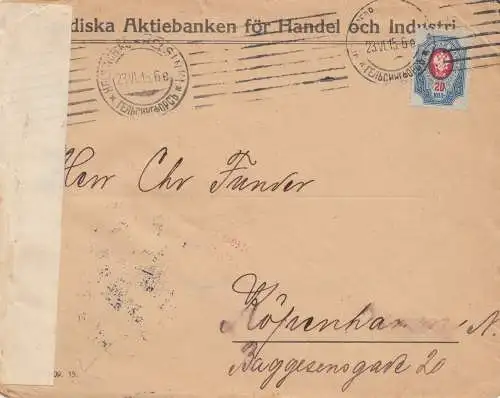 diska Aktiebanken för Handel och Industri
HELSINKI
23.VI.15.6e
ГЕЛЬСИНГФОРСЪ
23.VI.15.6e
ГЕЛЬСИНГФОРСЪ
20
КОП
Herr Chr Funder
Köpenhamn N.
Baggesensgade 20
09. 15.